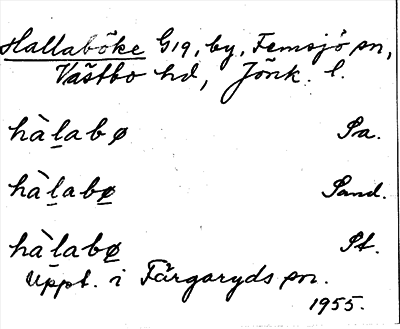 Hallaböke G19, by, Femsjö sn,
Västbo hd, Jönk. l.
hàl̲abø Sa.
hàl̲abø̲ Sand.
hàl̲abø̲ St.
Uppt. i Färgaryds sn.
1955.